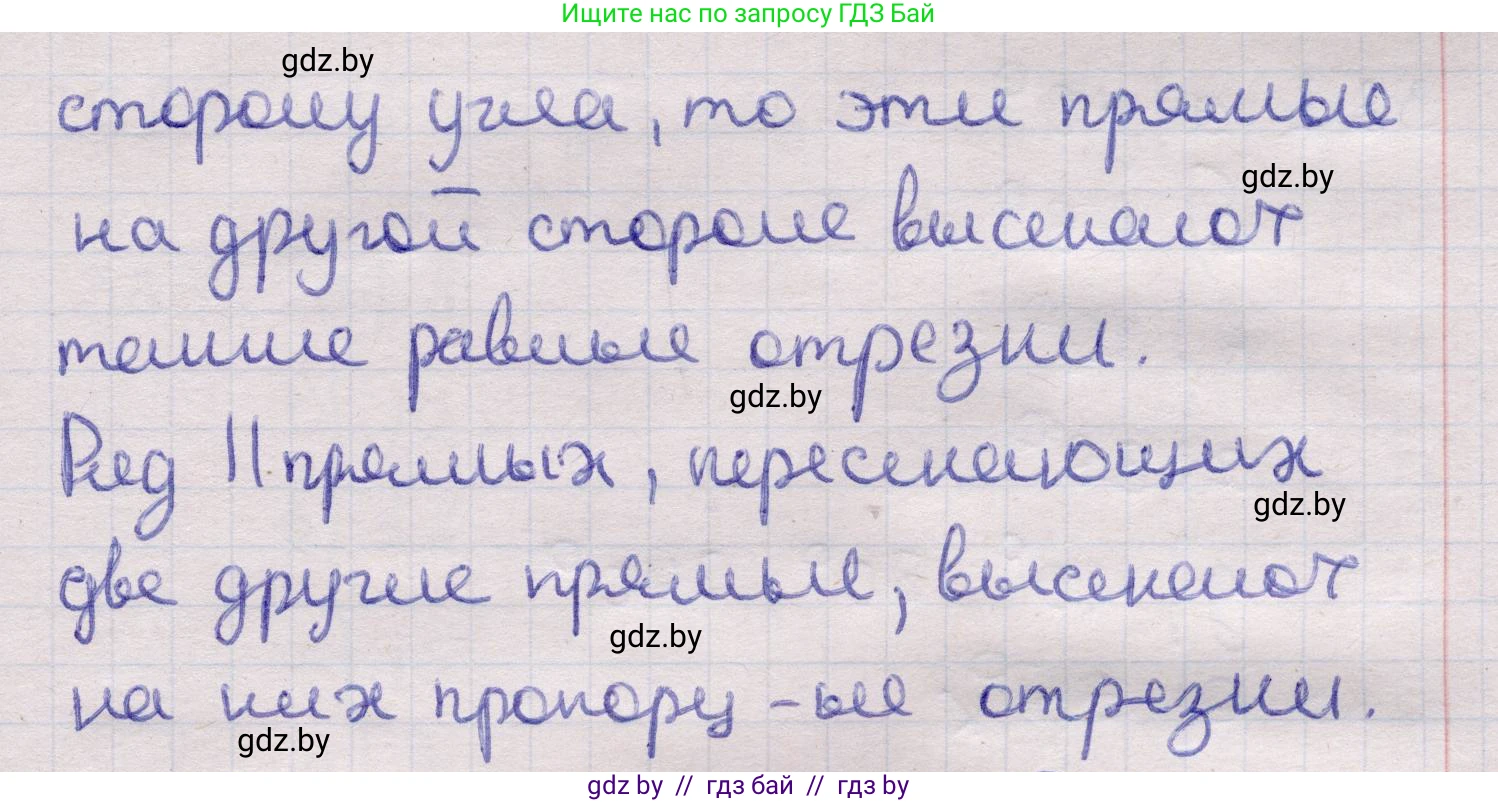 Ищите нас по запросу ГДЗ Бай
gdz.by
сторону угла, то эти прямые
gdz.by
на другой стороне высекают
также равные отрезки.
gdz.by
Ряд || прямых, пересекающих
gdz.by
две другие прямые, высекают
gdz.by
на них пропорц-ые отрезки.
gdz.by
gdz by // гдз бай // гдз by